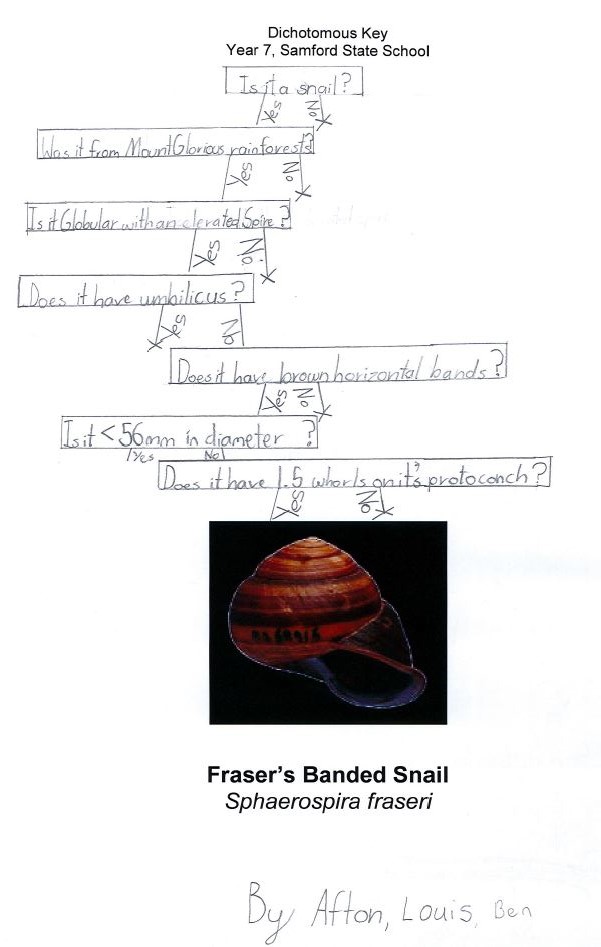 Dichotomous Key
Year 7, Samford State School
Is it a snail?
Yes No
Was it from Mount Glorious rainforests?
Yes No
Is it Globular with an elerated Spire?
Yes No
Does it have umbilicus?
Yes No
Does it have brown horizontal bands?
Yes No
Is it <56mm in diameter ?
Yes No
Does it have 1.5 whorls on it's protoconch?
Yes No
Fraser's Banded Snail
Sphaerospira fraseri
By Afton, Louis, Ben